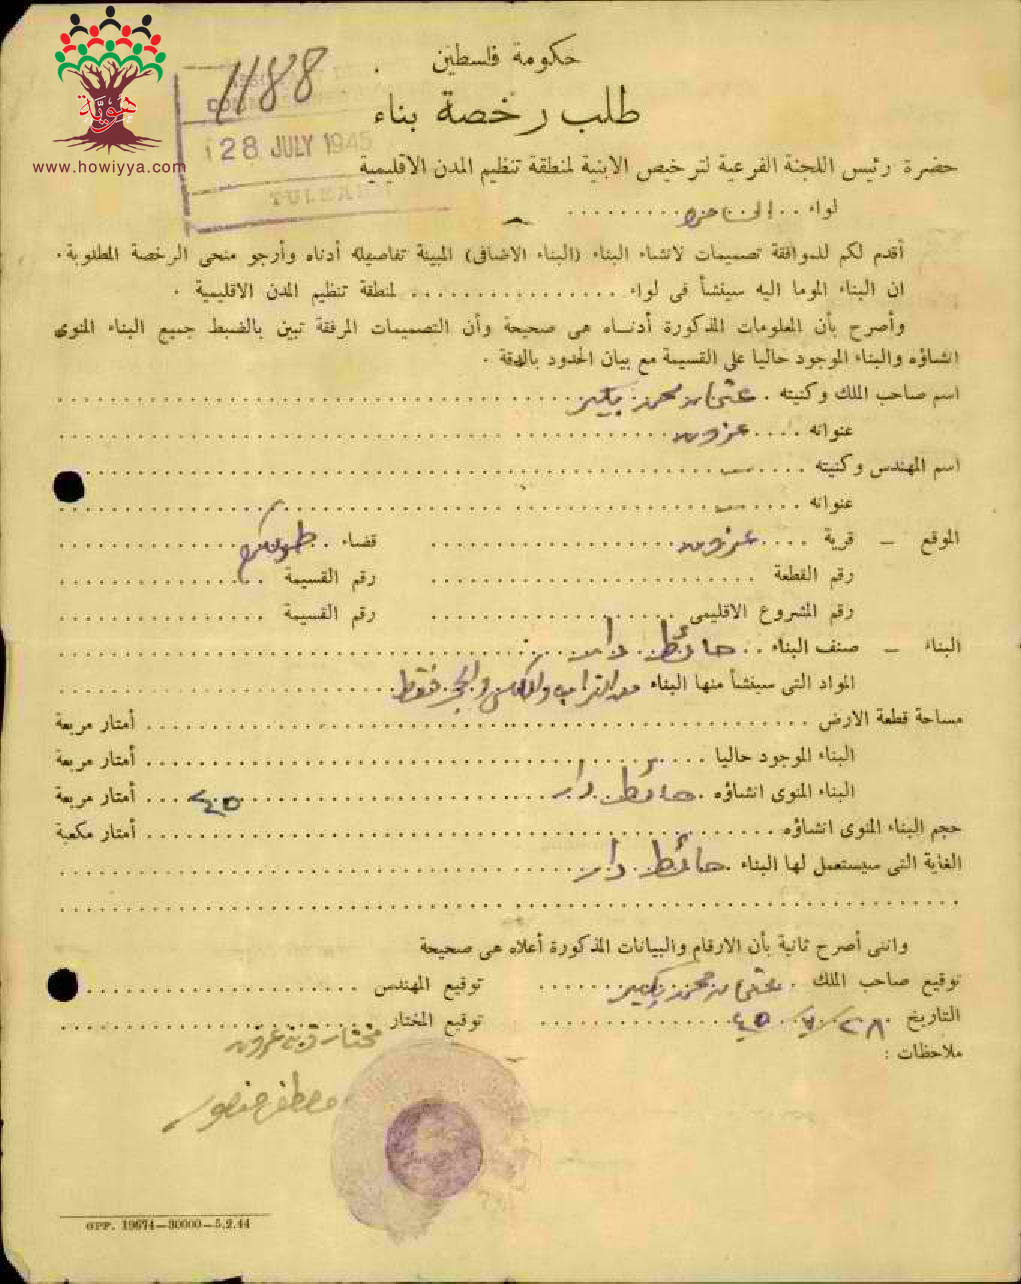 هَوِيَّة
www.howiyya.com
1188
28 JULY 1945
TULKA
حكومة فلسطين
طلب رخصة بناء
حضرة رئيس اللجنة الفرعية لترخيص الابنية لمنطقة تنظيم المدن الاقليمية
لواء
أقدم لكم للموافقة تصميمات لانشاء البناء (البناء الاضافى) المبينة تفاصيله أدناه وأرجو منحى الرخصة المطلوبة.
ان البناء الموما اليه سينشأ فى لواء ................ لمنطقة تنظيم المدن الاقليمية .
وأصرح بأن المعلومات المذكورة أدناه هى صحيحة وأن التصميمات المرفقة تبين بالضبط جميع البناء المنوى
انشاؤه والبناء الموجود حاليا على القسيمة مع بيان الحدود بالدقة .
اسم صاحب الملك وكنيته . عثمان محمد بكير
عنوانه .... عزون
اسم المهندس وكنيته ....
عنوانه ....
الموقع – قرية .... عزون .... قضاء .. طولكرم
رقم القطعة .... رقم القسيمة ....
رقم المشروع الاقليمى .... رقم القسيمة ....
البناء – صنف البناء .. حائط دار
المواد التى سينشأ منها البناء من التراب والكلس والحجر فقط
مساحة قطعة الارض .... أمتار مربعة
البناء الموجود حاليا .... أمتار مربعة
البناء المنوى انشاؤه . حائط دار .... ٤٥ ... أمتار مربعة
حجم البناء المنوى انشاؤه .... أمتار مكعبة
الغاية التى سيستعمل لها البناء . حائط دار
وانى أصرح ثانية بأن الارقام والبيانات المذكورة أعلاه هى صحيحة
توقيع صاحب الملك . عثمان محمد بكير توقيع المهندس ....
التاريخ ٢٨/٧/٤٥ توقيع المختار ....
مختار قرية عزون
ملاحظات :
مصطفى منصور
GPP. 19674—30000—5.2.44